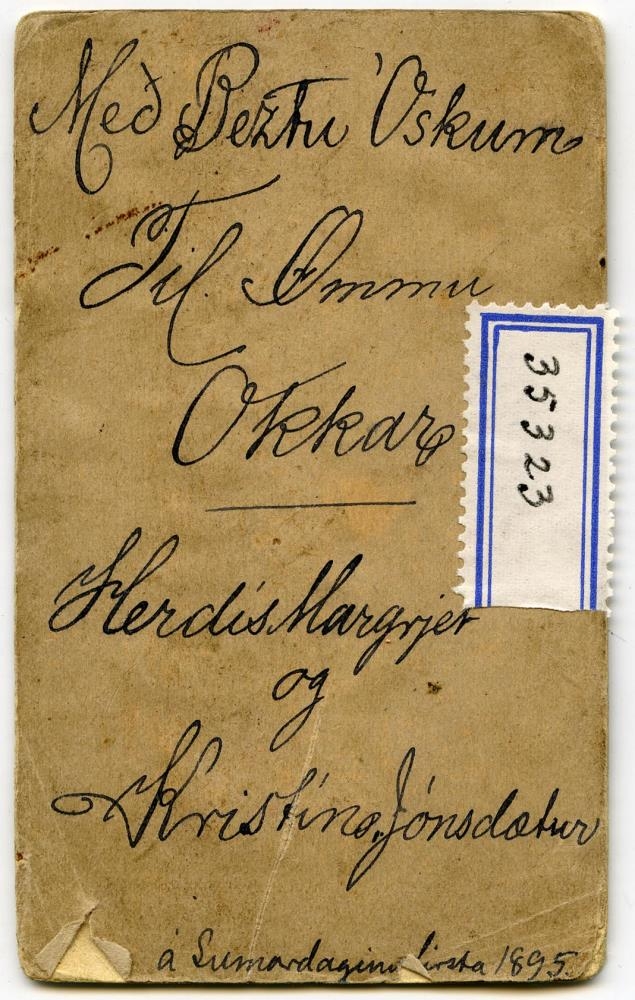 Með Beztu Óskum
Til Ömmu
Okkar
Herdís Margrjet
og
Kristín Jónsdætur
á Sumardaginn firsta 1895.
35323